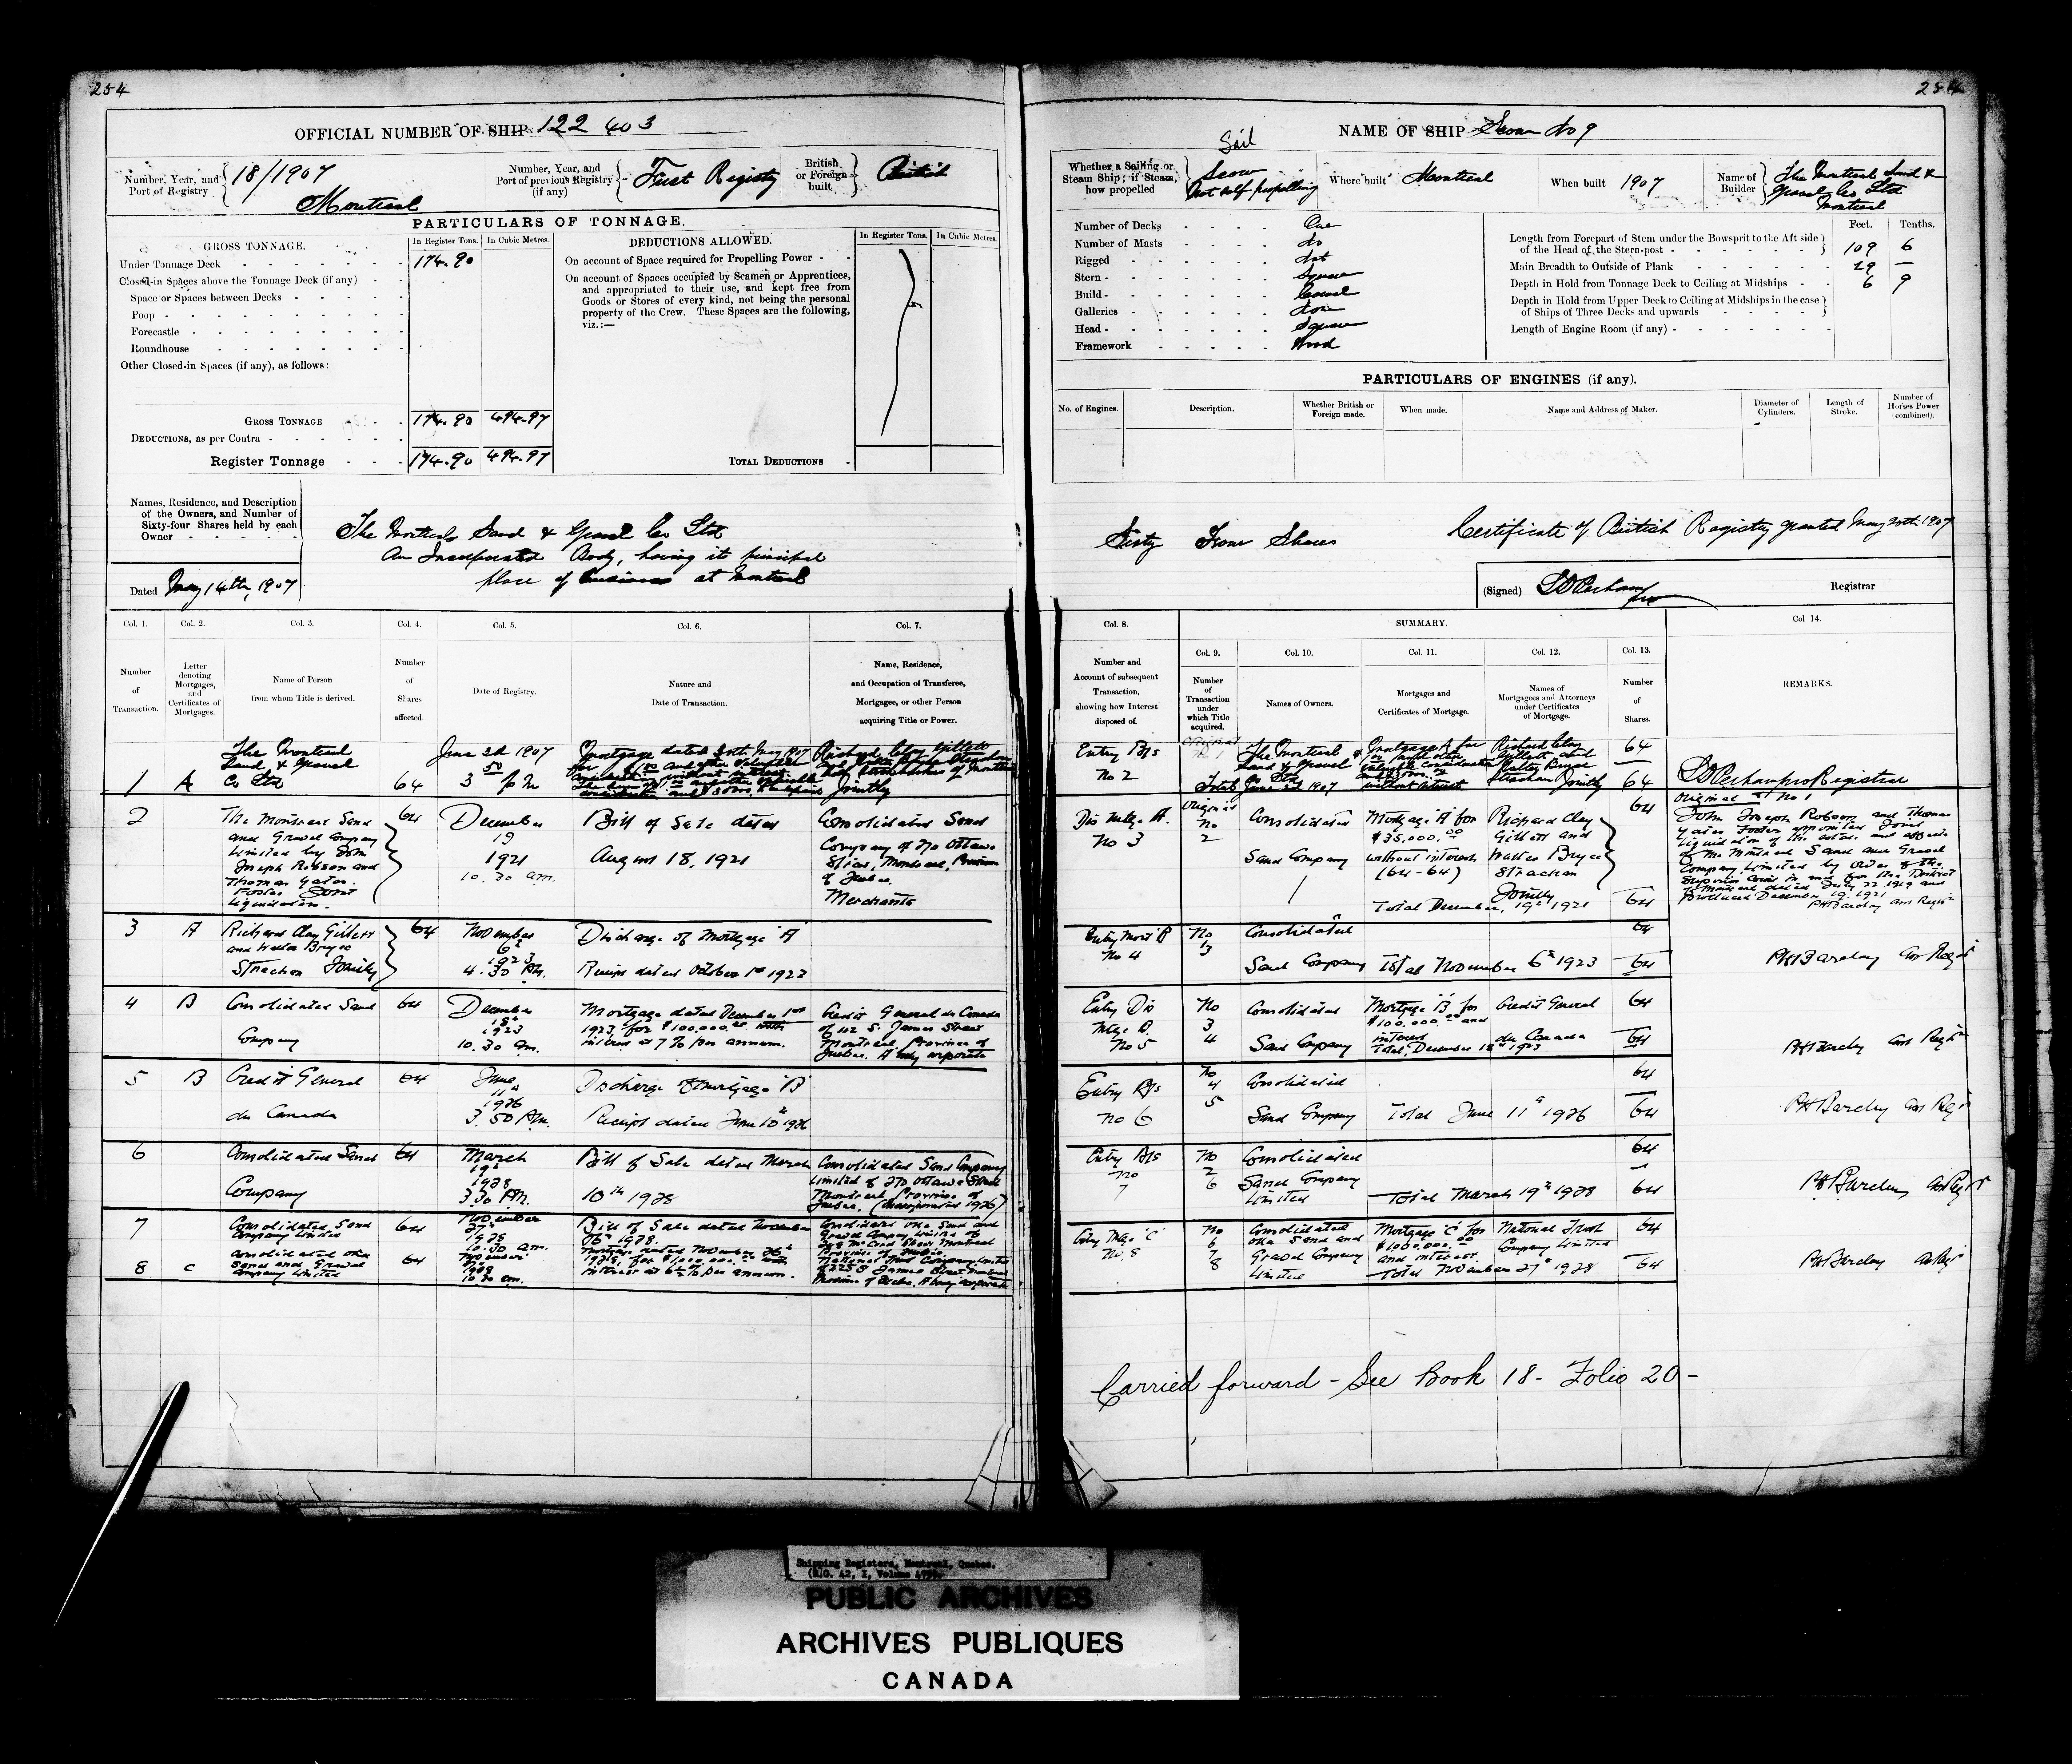 254
OFFICIAL NUMBER OF SHIP 122 403
Number, Year, and Port of Registry
18/1907
Montreal
Number, Year, and Port of previous Registry (if any)
First Registry
British or Foreign built
British
PARTICULARS OF TONNAGE.
GROSS TONNAGE.
In Register Tons.
In Cubic Metres.
Under Tonnage Deck
174.90
Closed-in Spaces above the Tonnage Deck (if any)
Space or Spaces between Decks
Poop
Forecastle
Roundhouse
Other Closed-in Spaces (if any), as follows:
GROSS TONNAGE
174.90
494.97
DEDUCTIONS, as per Contra
Register Tonnage
174.90
494.97
DEDUCTIONS ALLOWED.
In Register Tons.
In Cubic Metres.
On account of Space required for Propelling Power
On account of Spaces occupied by Seamen or Apprentices,
and appropriated to their use, and kept free from
Goods or Stores of every kind, not being the personal
property of the Crew. These Spaces are the following,
viz.:—
TOTAL DEDUCTIONS
Names, Residence, and Description
of the Owners, and Number of
Sixty-four Shares held by each
Owner
The Montreal Sand & Gravel Co Ltd
An Incorporated Body, having its principal
place of business at Montreal
Dated May 14th, 1907
Col. 1.
Number of Transaction.
Col. 2.
Letter denoting Mortgages, and Certificates of Mortgages.
Col. 3.
Name of Person from whom Title is derived.
Col. 4.
Number of Shares affected.
Col. 5.
Date of Registry.
Col. 6.
Nature and Date of Transaction.
Col. 7.
Name, Residence, and Occupation of Transferee, Mortgagee, or other Person acquiring Title or Power.
1 A
The Montreal
Sand & Gravel
Co Ltd
64
June 3d 1907
3 50 p m
Mortgage dated 30th May 1907
Richard Clay Gillett
Jointly
2
The Montreal Sand
and Gravel Company
Limited by John
Joseph Robson and
Thomas Yates
Foster Joint
Liquidators.
64
December
19
1921
10.30 am.
Bill of Sale dated
August 18, 1921
Consolidated Sand
Company of 270 Ottawa
Street, Montreal, Province
of Quebec.
Merchants
3 A
Richard Clay Gillett
and Walter Bryce
Strachan Jointly
64
November
6th
1923
4.30 P.M.
Discharge of Mortgage "A"
Receipt dated October 1st 1923
4 B
Consolidated Sand
Company
64
December
18th
1923
10.30 am.
Mortgage dated December 1st
1923, for $100,000.00 with
interest at 7% per annum.
Credit General du Canada
of 112 St. James Street
Montreal, Province of
Quebec. A body corporate
5 B
Credit General
du Canada
64
June
11
1926
3.50 P.M.
Discharge of mortgage "B"
Receipt dated June 10th 1926
6
Consolidated Sand
Company
64
March
19th
1928
3.30 P.M.
Bill of Sale dated March
10th 1928
Consolidated Sand Company
Limited of 270 Ottawa Street
Montreal, Province of
Quebec. (Incorporated 1926)
7
Consolidated Sand
Company Limited
64
November
27th
1928
10.30 am.
Bill of Sale dated November
26th 1928.
Consolidated Oka Sand and
Gravel Company Limited of
Province of Quebec.
8 C
Consolidated Oka
Sand and Gravel
Company Limited
64
November
1928
10.30 am.
Mortgage dated November 26th
1928, for $1,000,000.00 with
interest at 6½% per annum.
National Trust Company Limited
Province of Quebec. A body corporate
254
NAME OF SHIP Scow No 9
Whether a Sailing or Steam Ship; if Steam, how propelled
Sail
Scow
Not self propelling
Where built Montreal
When built 1907
Name of Builder
The Montreal Sand &
Gravel Co Ltd
Montreal
Number of Decks One
Number of Masts No
Rigged Not
Stern Square
Build Carvel
Galleries None
Head Square
Framework Wood
Feet. Tenths.
Length from Forepart of Stem under the Bowsprit to the Aft side
of the Head of the Stern-post 109 6
Main Breadth to Outside of Plank 29 —
Depth in Hold from Tonnage Deck to Ceiling at Midships 6 9
Depth in Hold from Upper Deck to Ceiling at Midships in the case
of Ships of Three Decks and upwards
Length of Engine Room (if any)
PARTICULARS OF ENGINES (if any).
No. of Engines.
Description.
Whether British or Foreign made.
When made.
Name and Address of Maker.
Diameter of Cylinders.
Length of Stroke.
Number of Horses Power (combined).
Sixty Four Shares
Certificate of British Registry granted May 20th 1907
(Signed)
Registrar
Col. 8.
Number and Account of subsequent Transaction, showing how Interest disposed of.
SUMMARY.
Col. 9.
Number of Transaction under which Title acquired.
Col. 10.
Names of Owners.
Col. 11.
Mortgages and Certificates of Mortgage.
Col. 12.
Names of Mortgagees and Attorneys under Certificates of Mortgage.
Col. 13.
Number of Shares.
Col 14.
REMARKS.
Entry B/s
No 2
Original
The Montreal
Sand & Gravel
Co Ltd
Total June 3d 1907
without interest
Richard Clay
Gillett and
Walter Bryce
Strachan Jointly
64
64
Registrar
Dis Mtge A.
No 3
Original
No
2
Consolidated
Sand Company
Mortgage "A" for
$35,000.00
without interest
(64-64)
Total December, 19th 1921
Richard Clay
Gillett and
Walter Bryce
Strachan
Jointly
64
64
Original No 1
John Joseph Robson and Thomas
Yates Foster appointed Joint
Liquidators of the estate and affairs
of the Montreal Sand and Gravel
Company Limited by order of the
Superior Court in and for the District
of Montreal dated July 22 1919 and
Produced December, 19, 1921
PH Barclay Asst Registr
Entry Mort B
No 4
No
3
Consolidated
Sand Company
Total November 6th 1923
64
64
PH Barclay Asst Registr
Entry Dis
Mtge B.
No 5
No
3
4
Consolidated
Sand Company
Mortgage "B" for
$100,000.00 and
interest
Total, December 18th 1923
Credit General
du Canada
64
64
PH Barclay Asst Registr
Entry B/s
No 6
No
4
5
Consolidated
Sand Company
Total June 11th 1926
64
64
PH Barclay Asst Registr
Entry B/s
No
7
No
2
6
Consolidated
Sand Company
Limited
Total March 19th 1928
64
64
PH Barclay Asst Registr
Entry Mtge "C"
No 8
No
7
8
Consolidated
Oka Sand and
Gravel Company
Limited
Mortgage "C" for
$1,000,000.00
and interest.
Total November 27th 1928
National Trust
Company Limited
64
64
PH Barclay
Carried forward - See Book 18 - Folio 20 -
Shipping Registers, Montreal, Quebec.
(R.G. 42, I, Volume
PUBLIC ARCHIVES
ARCHIVES PUBLIQUES
CANADA